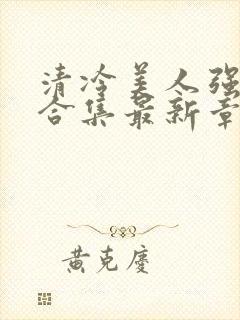 清冷美人强
合集最新章
黄克庆